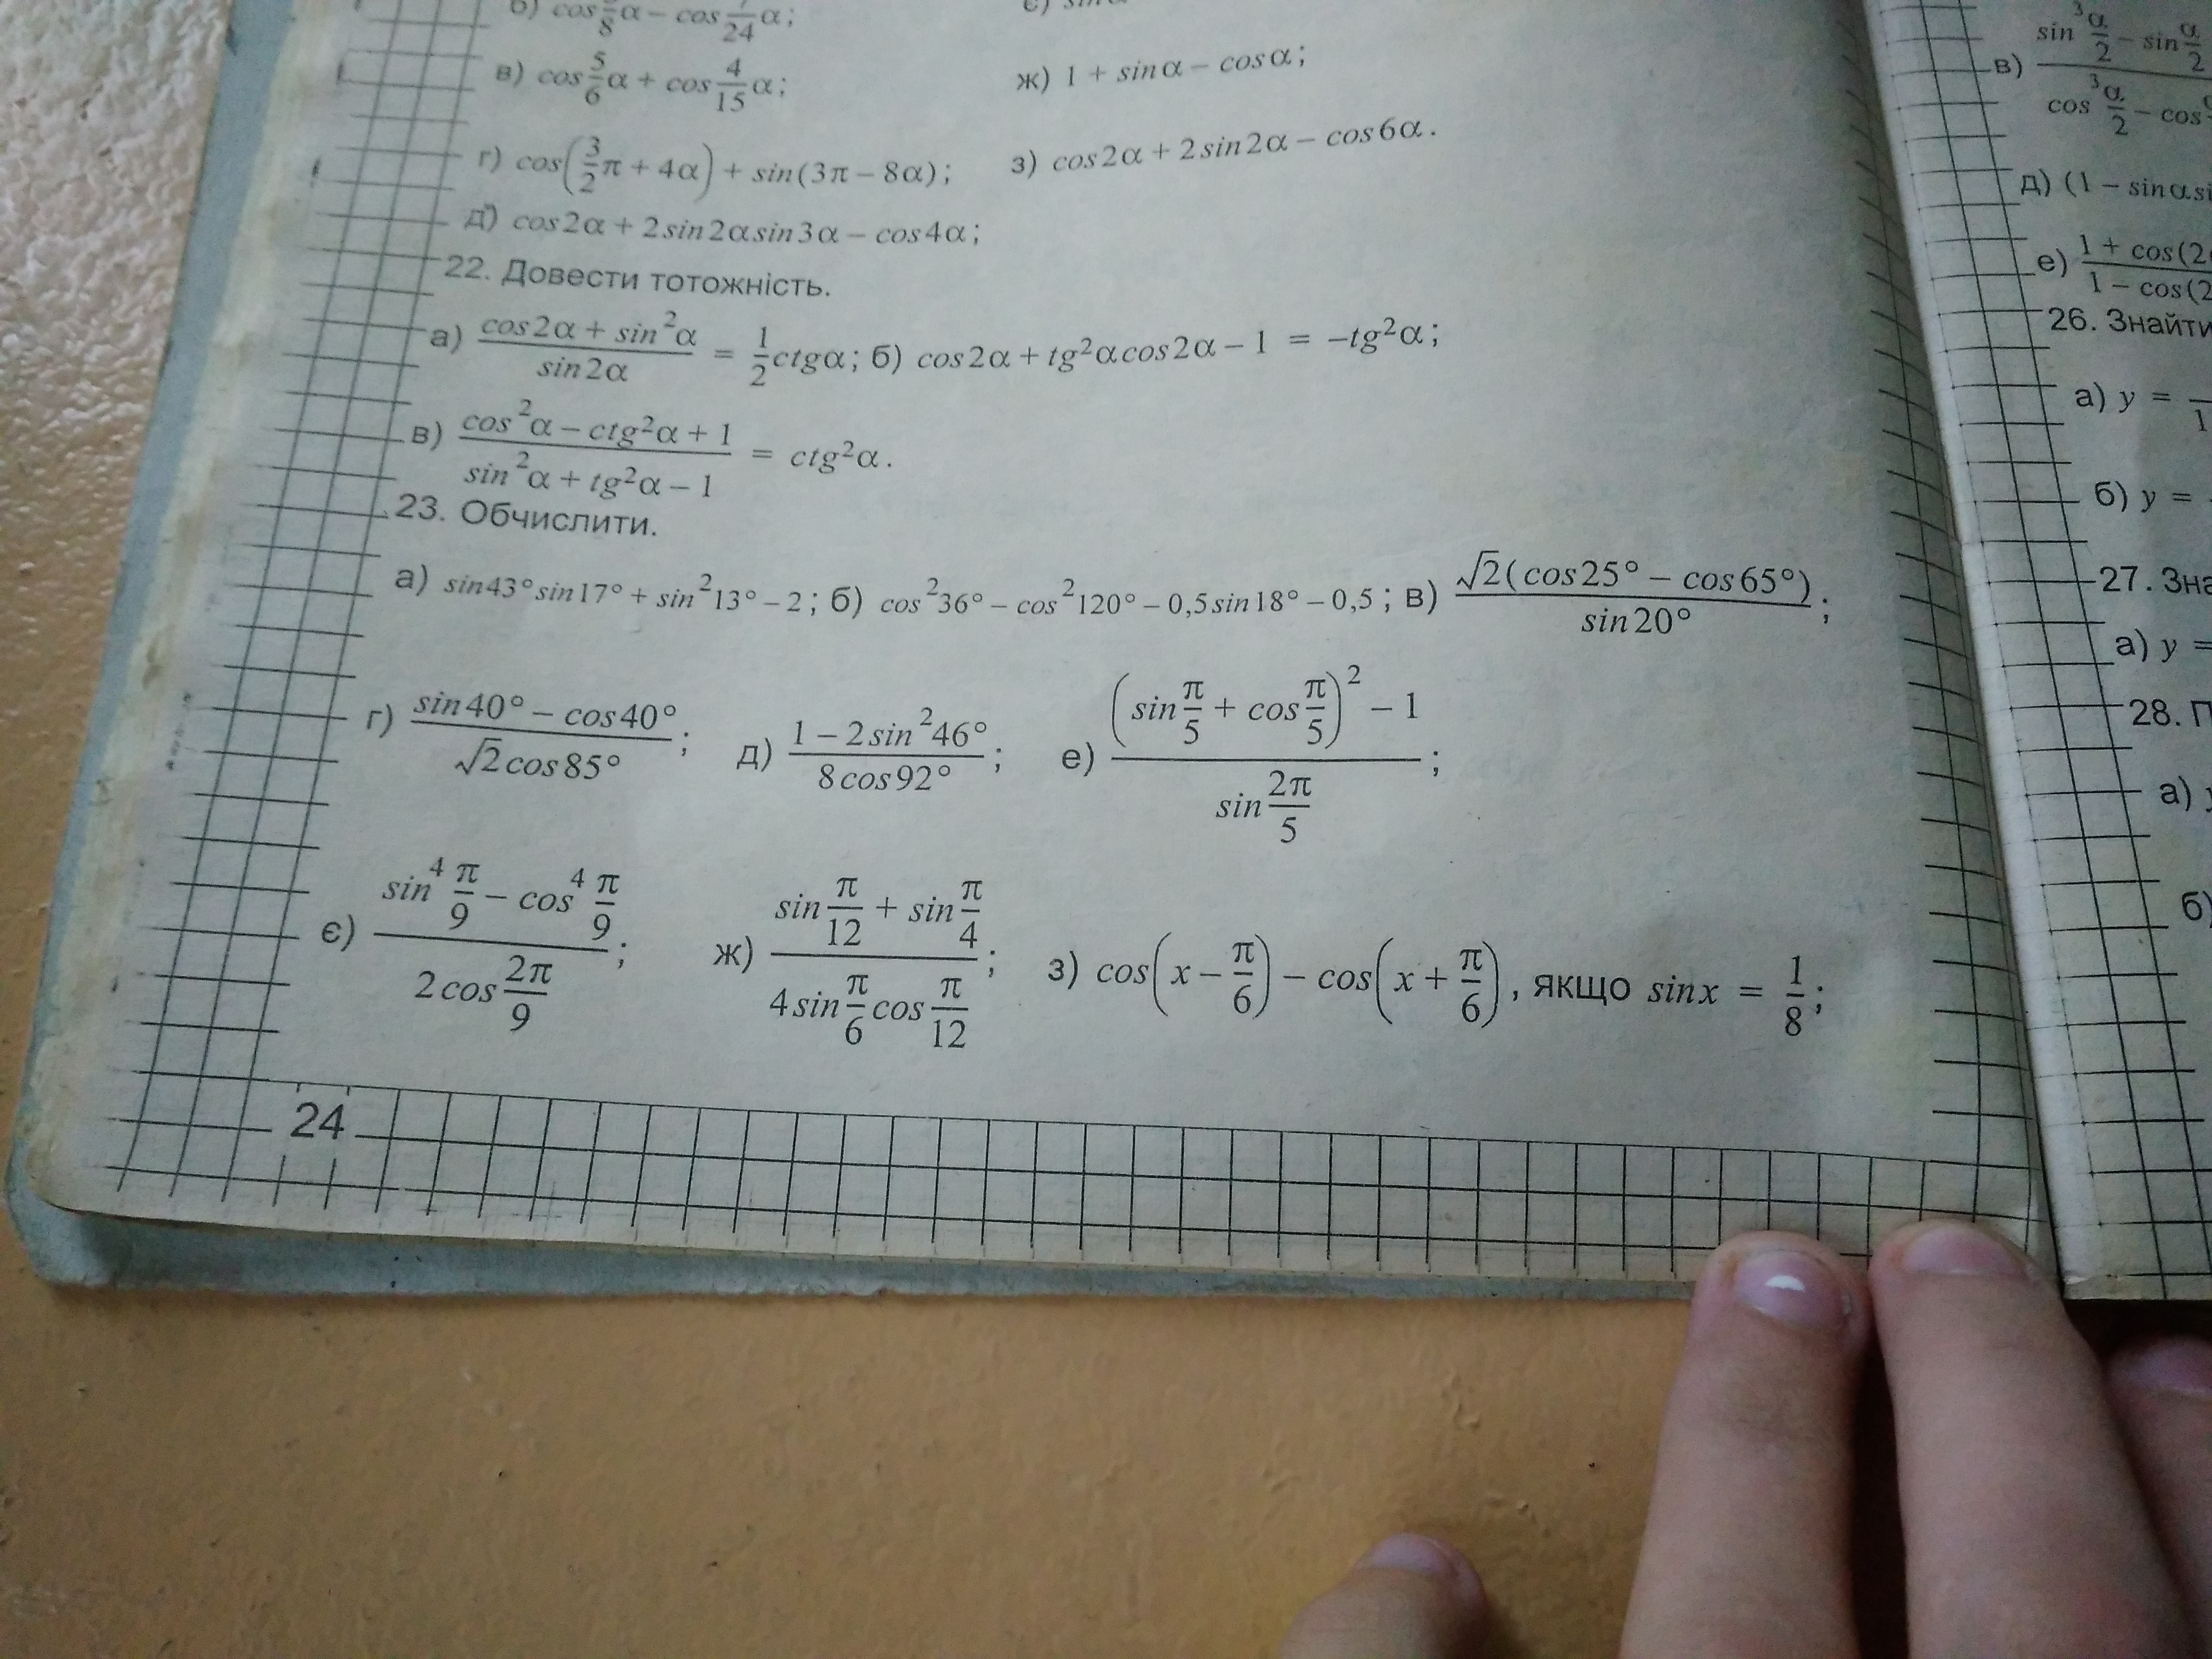 б) cos 5/8 α – cos 7/24 α;
в) cos 5/6 α + cos 4/15 α;
ж) 1 + sinα – cosα;
г) cos(3/2 π + 4α) + sin(3π – 8α);
з) cos2α + 2sin2α – cos6α.
д) cos2α + 2sin2αsin3α – cos4α;
22. Довести тотожність.
а) (cos2α + sin²α)/(sin2α) = 1/2 ctgα; б) cos2α + tg²αcos2α – 1 = –tg²α;
в) (cos²α – ctg²α + 1)/(sin²α + tg²α – 1) = ctg²α.
23. Обчислити.
а) sin43°sin17° + sin²13° – 2; б) cos²36° – cos²120° – 0,5sin18° – 0,5; в) √2(cos25° – cos65°)/sin20°;
г) (sin40° – cos40°)/(√2cos85°); д) (1 – 2sin²46°)/(8cos92°); е) ((sin π/5 + cos π/5)² – 1)/(sin 2π/5);
є) (sin⁴ π/9 – cos⁴ π/9)/(2cos 2π/9); ж) (sin π/12 + sin π/4)/(4sin π/6 cos π/12); з) cos(x – π/6) – cos(x + π/6), якщо sinx = 1/8;
24
в) sin³ α/2 – sin α/2
cos³ α/2 – cos
д) (1 – sinα
е) 1 + cos(2
1 – cos(2
26. Знайти
а) y =
б) y =
27.
а) y =
28.
а)
б)